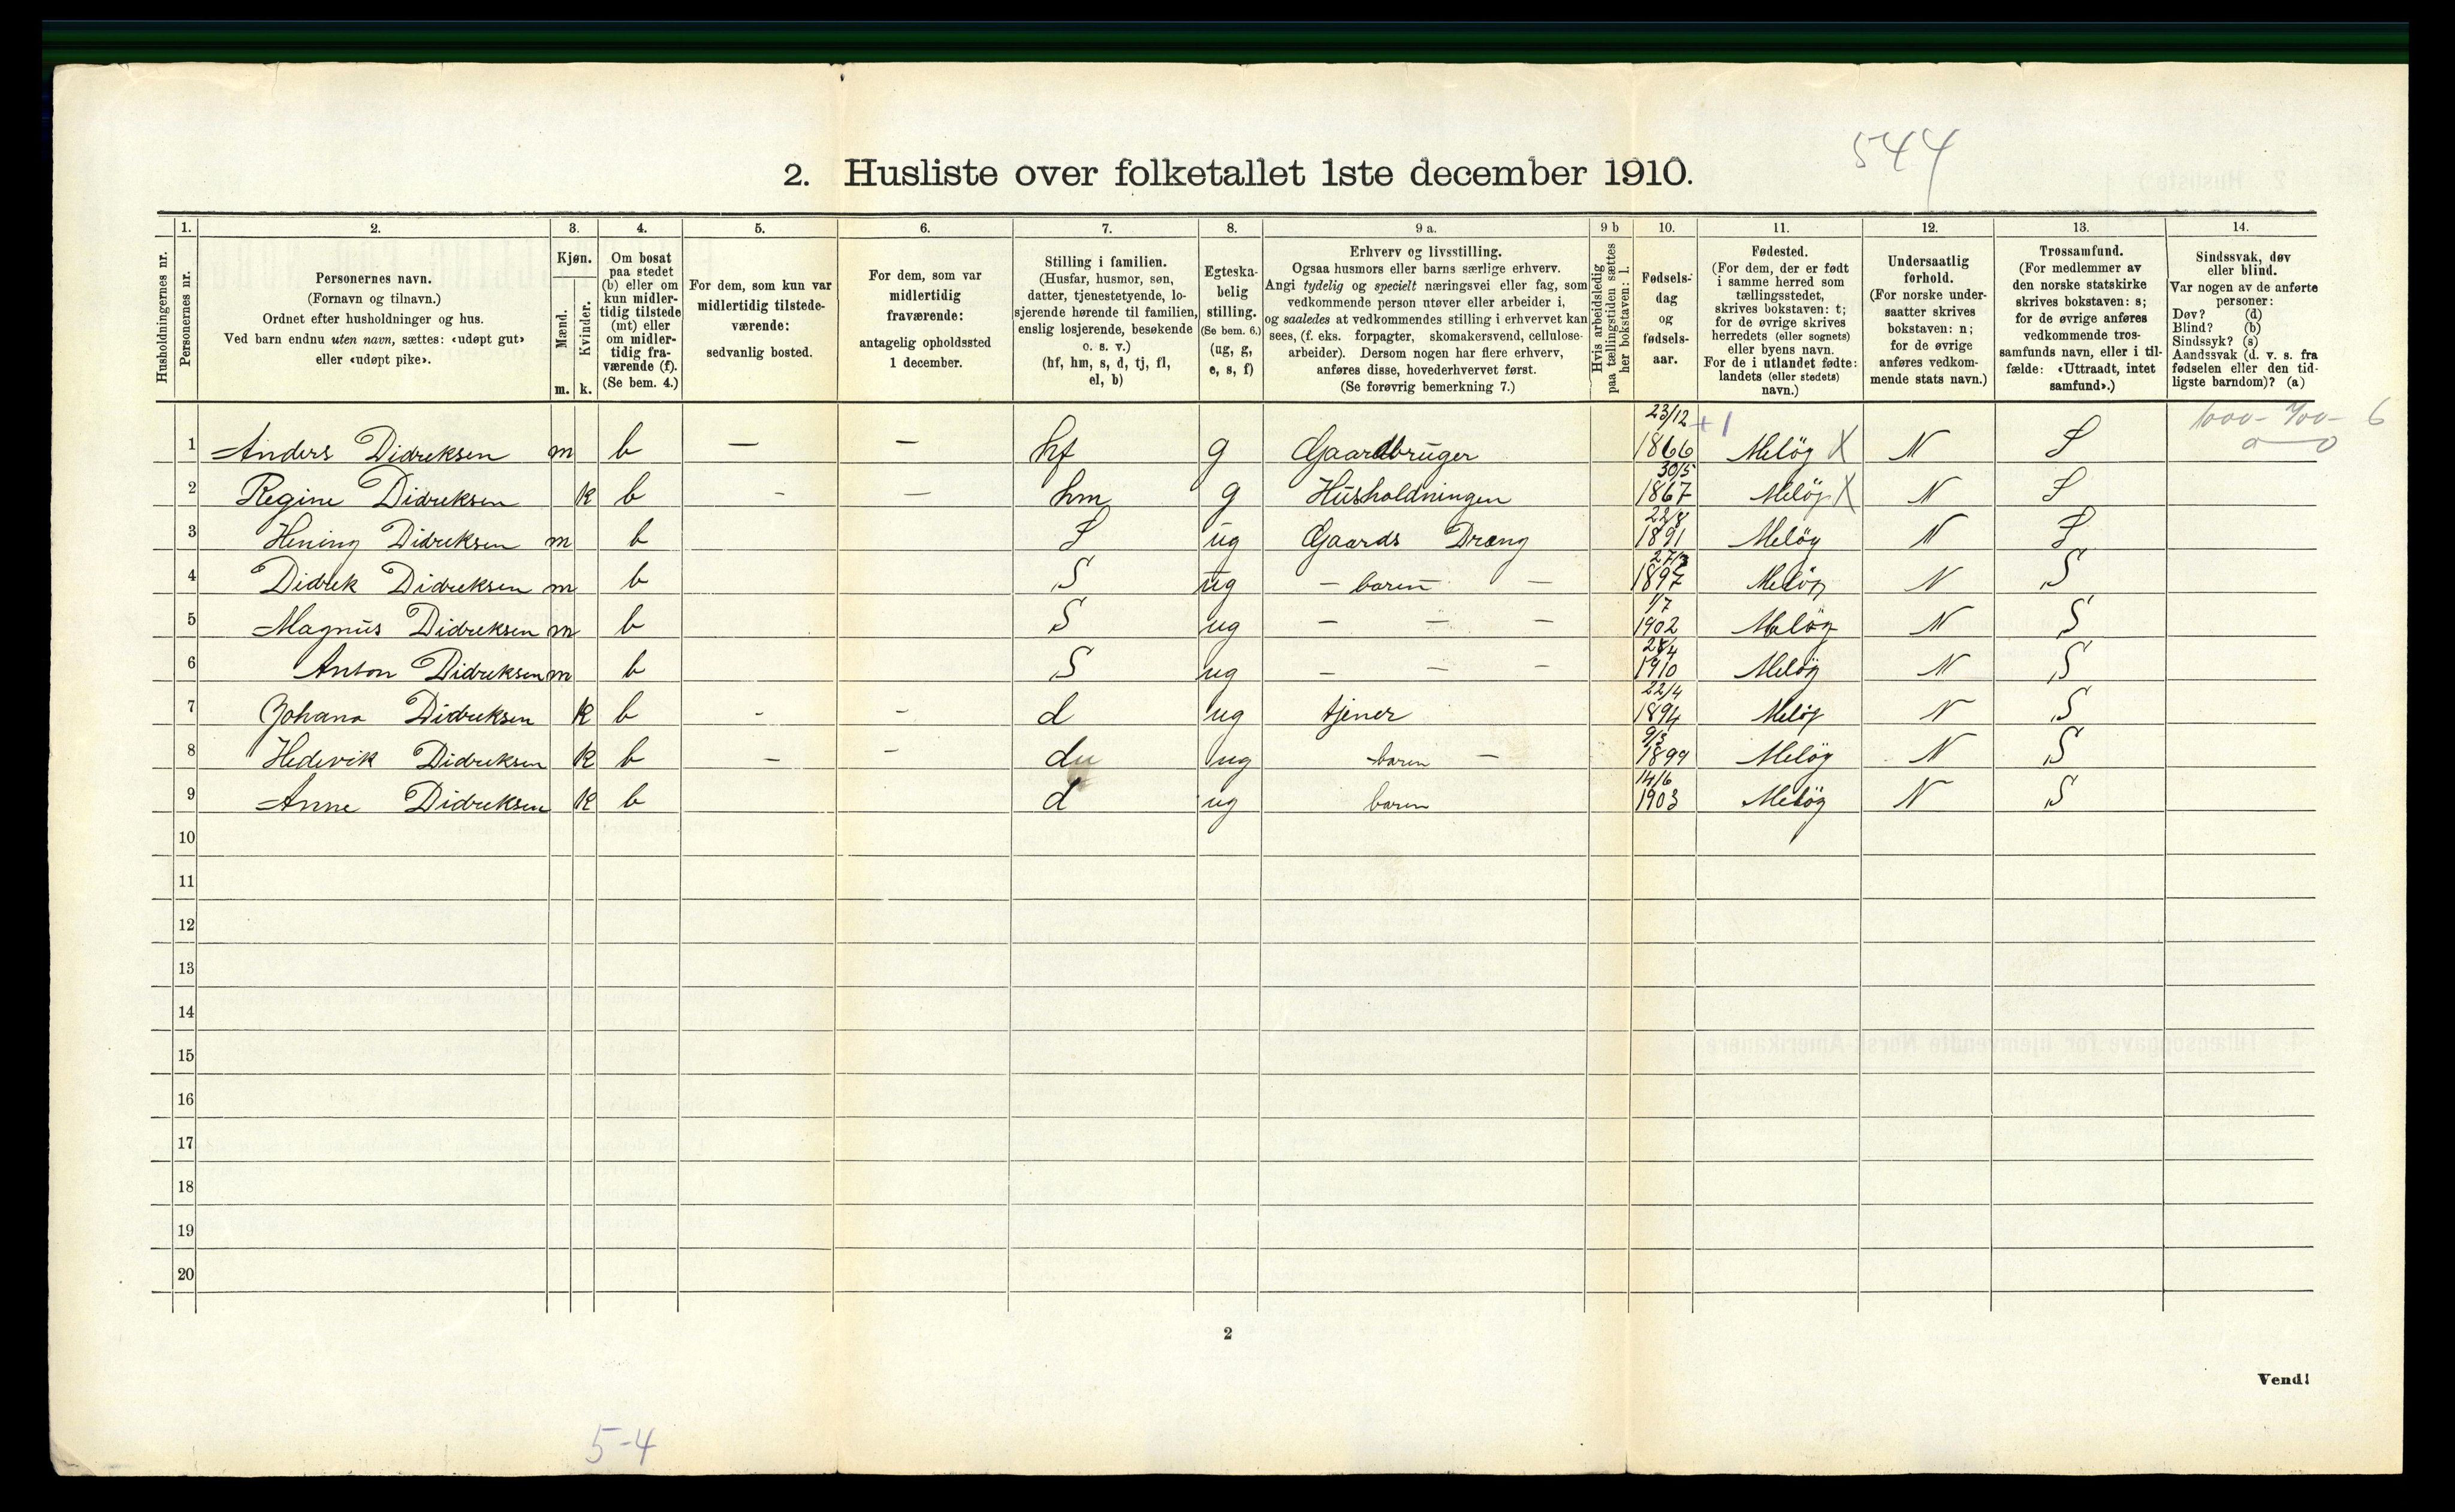 544
2. Husliste over folketallet 1ste december 1910.
Husholdningernes nr.
1.
Personernes nr.
2.
Personernes navn.
(Fornavn og tilnavn.)
Ordnet efter husholdninger og hus.
Ved barn endnu uten navn, sættes: «udøpt gut»
eller «udøpt pike».
3.
Kjøn.
Mænd.
m.
Kvinder.
k.
4.
Om bosat
paa stedet
(b) eller om
kun midler-
tidig tilstede
(mt) eller
om midler-
tidig fra-
værende (f).
(Se bem. 4.)
5.
For dem, som kun var
midlertidig tilstede-
værende:
sedvanlig bosted.
6.
For dem, som var
midlertidig
fraværende:
antagelig opholdssted
1 december.
7.
Stilling i familien.
(Husfar, husmor, søn,
datter, tjenestetyende, lo-
sjerende hørende til familien,
enslig losjerende, besøkende
o. s. v.)
(hf, hm, s, d, tj, fl,
el, b)
8.
Egteska-
belig
stilling.
(Se bem. 6.)
(ug, g,
e, s, f)
9 a.
Erhverv og livsstilling.
Ogsaa husmors eller barns særlige erhverv.
Angi tydelig og specielt næringsvei eller fag, som
vedkommende person utøver eller arbeider i,
og saaledes at vedkommendes stilling i erhvervet kan
sees, (f. eks. forpagter, skomakersvend, cellulose-
arbeider). Dersom nogen har flere erhverv,
anføres disse, hovederhvervet først.
(Se forøvrig bemerkning 7.)
9 b
Hvis arbeidsledig
paa tællingstiden sættes
her bokstaven: l.
10.
Fødsels-
dag
og
fødsels-
aar.
11.
Fødested.
(For dem, der er født
i samme herred som
tællingsstedet,
skrives bokstaven: t;
for de øvrige skrives
herredets (eller sognets)
eller byens navn.
For de i utlandet fødte:
landets (eller stedets)
navn.)
12.
Undersaatlig
forhold.
(For norske under-
saatter skrives
bokstaven: n;
for de øvrige
anføres vedkom-
mende stats navn.)
13.
Trossamfund.
(For medlemmer av
den norske statskirke
skrives bokstaven: s;
for de øvrige anføres
vedkommende tros-
samfunds navn, eller i til-
fælde: «Uttraadt, intet
samfund».)
14.
Sindssvak, døv
eller blind.
Var nogen av de anførte
personer:
Døv? (d)
Blind? (b)
Sindssyk? (s)
Aandssvak (d. v. s. fra
fødselen eller den tid-
ligste barndom)? (a)
1 Anders Didreksen m b — — hf g Gaardbruger 23/12 1866 +1 Meløy X N S
2 Regine Didreksen k b - — hm g Husholdningen 30/5 1867 Meløy X N S
3 Hening Didreksen m b S ug Gaards Dræng 22/8 1891 Meløy N S
4 Didrek Didreksen m b S ug — baren — 1897 Meløy N S
5 Magnus Didreksen m b S ug — — — 1/7 1902 Meløy N S
6 Anton Didreksen m b S ug — — — 1910 Meløy N S
7 Johana Didreksen k b - - d ug tjener 22/4 1894 Meløy N S
8 Hedevik Didreksen k b - - d ug baren — 9/3 1899 Meløy N S
9 Anne Didreksen k b d ug baren 14/6 1903 Meløy N S
10
11
12
13
14
15
16
17
18
19
20
2
Vend!
5-4